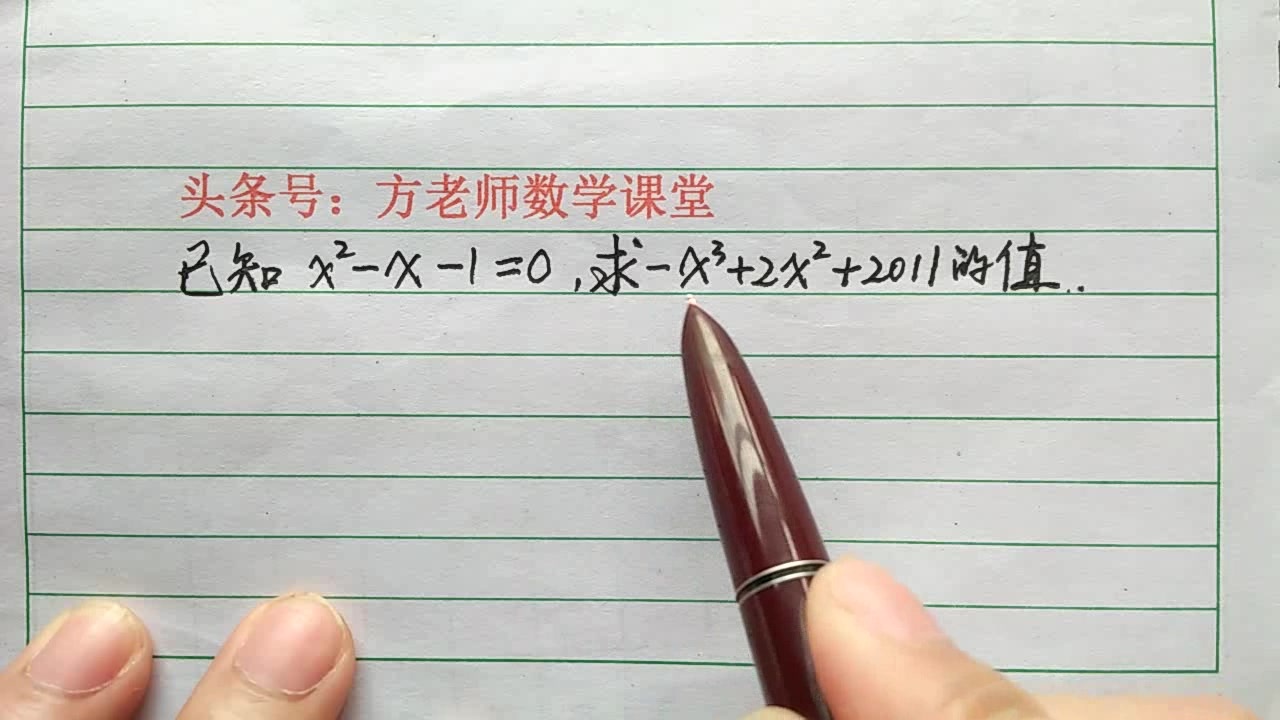 头条号：方老师数学课堂
已知 x²-x-1=0,求-x³+2x²+2011的值..